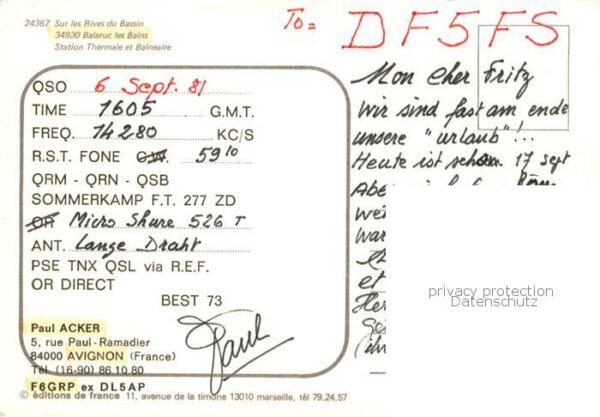 24367 Sur les Rives du Bassin
34930 Balaruc les Bains
Station Thermale et Balneaire
To = DF5FS
QSO 6 Sept. 81
TIME 1605 G.M.T.
FREQ. 14280 KC/S
R.S.T. FONE C.W. 59 10
QRM - QRN - QSB
SOMMERKAMP F.T. 277 ZD
OR Micro Shure 526 T
ANT. Lange Draht
PSE TNX QSL via R.E.F.
OR DIRECT
BEST 73
Paul ACKER
5, rue Paul-Ramadier
84000 AVIGNON (France)
Tél (16-90) 86.10.80
F6GRP ex DL5AP
Paul
© éditions de france 11, avenue de la timone 13010 marseille, tél 79.24.57
Mon cher Fritz
Wir sind fast am ende
unsere "urlaub"!..
Heute ist schon 17 sept
Abe
wei
war
et
Her
privacy protection
Datenschutz